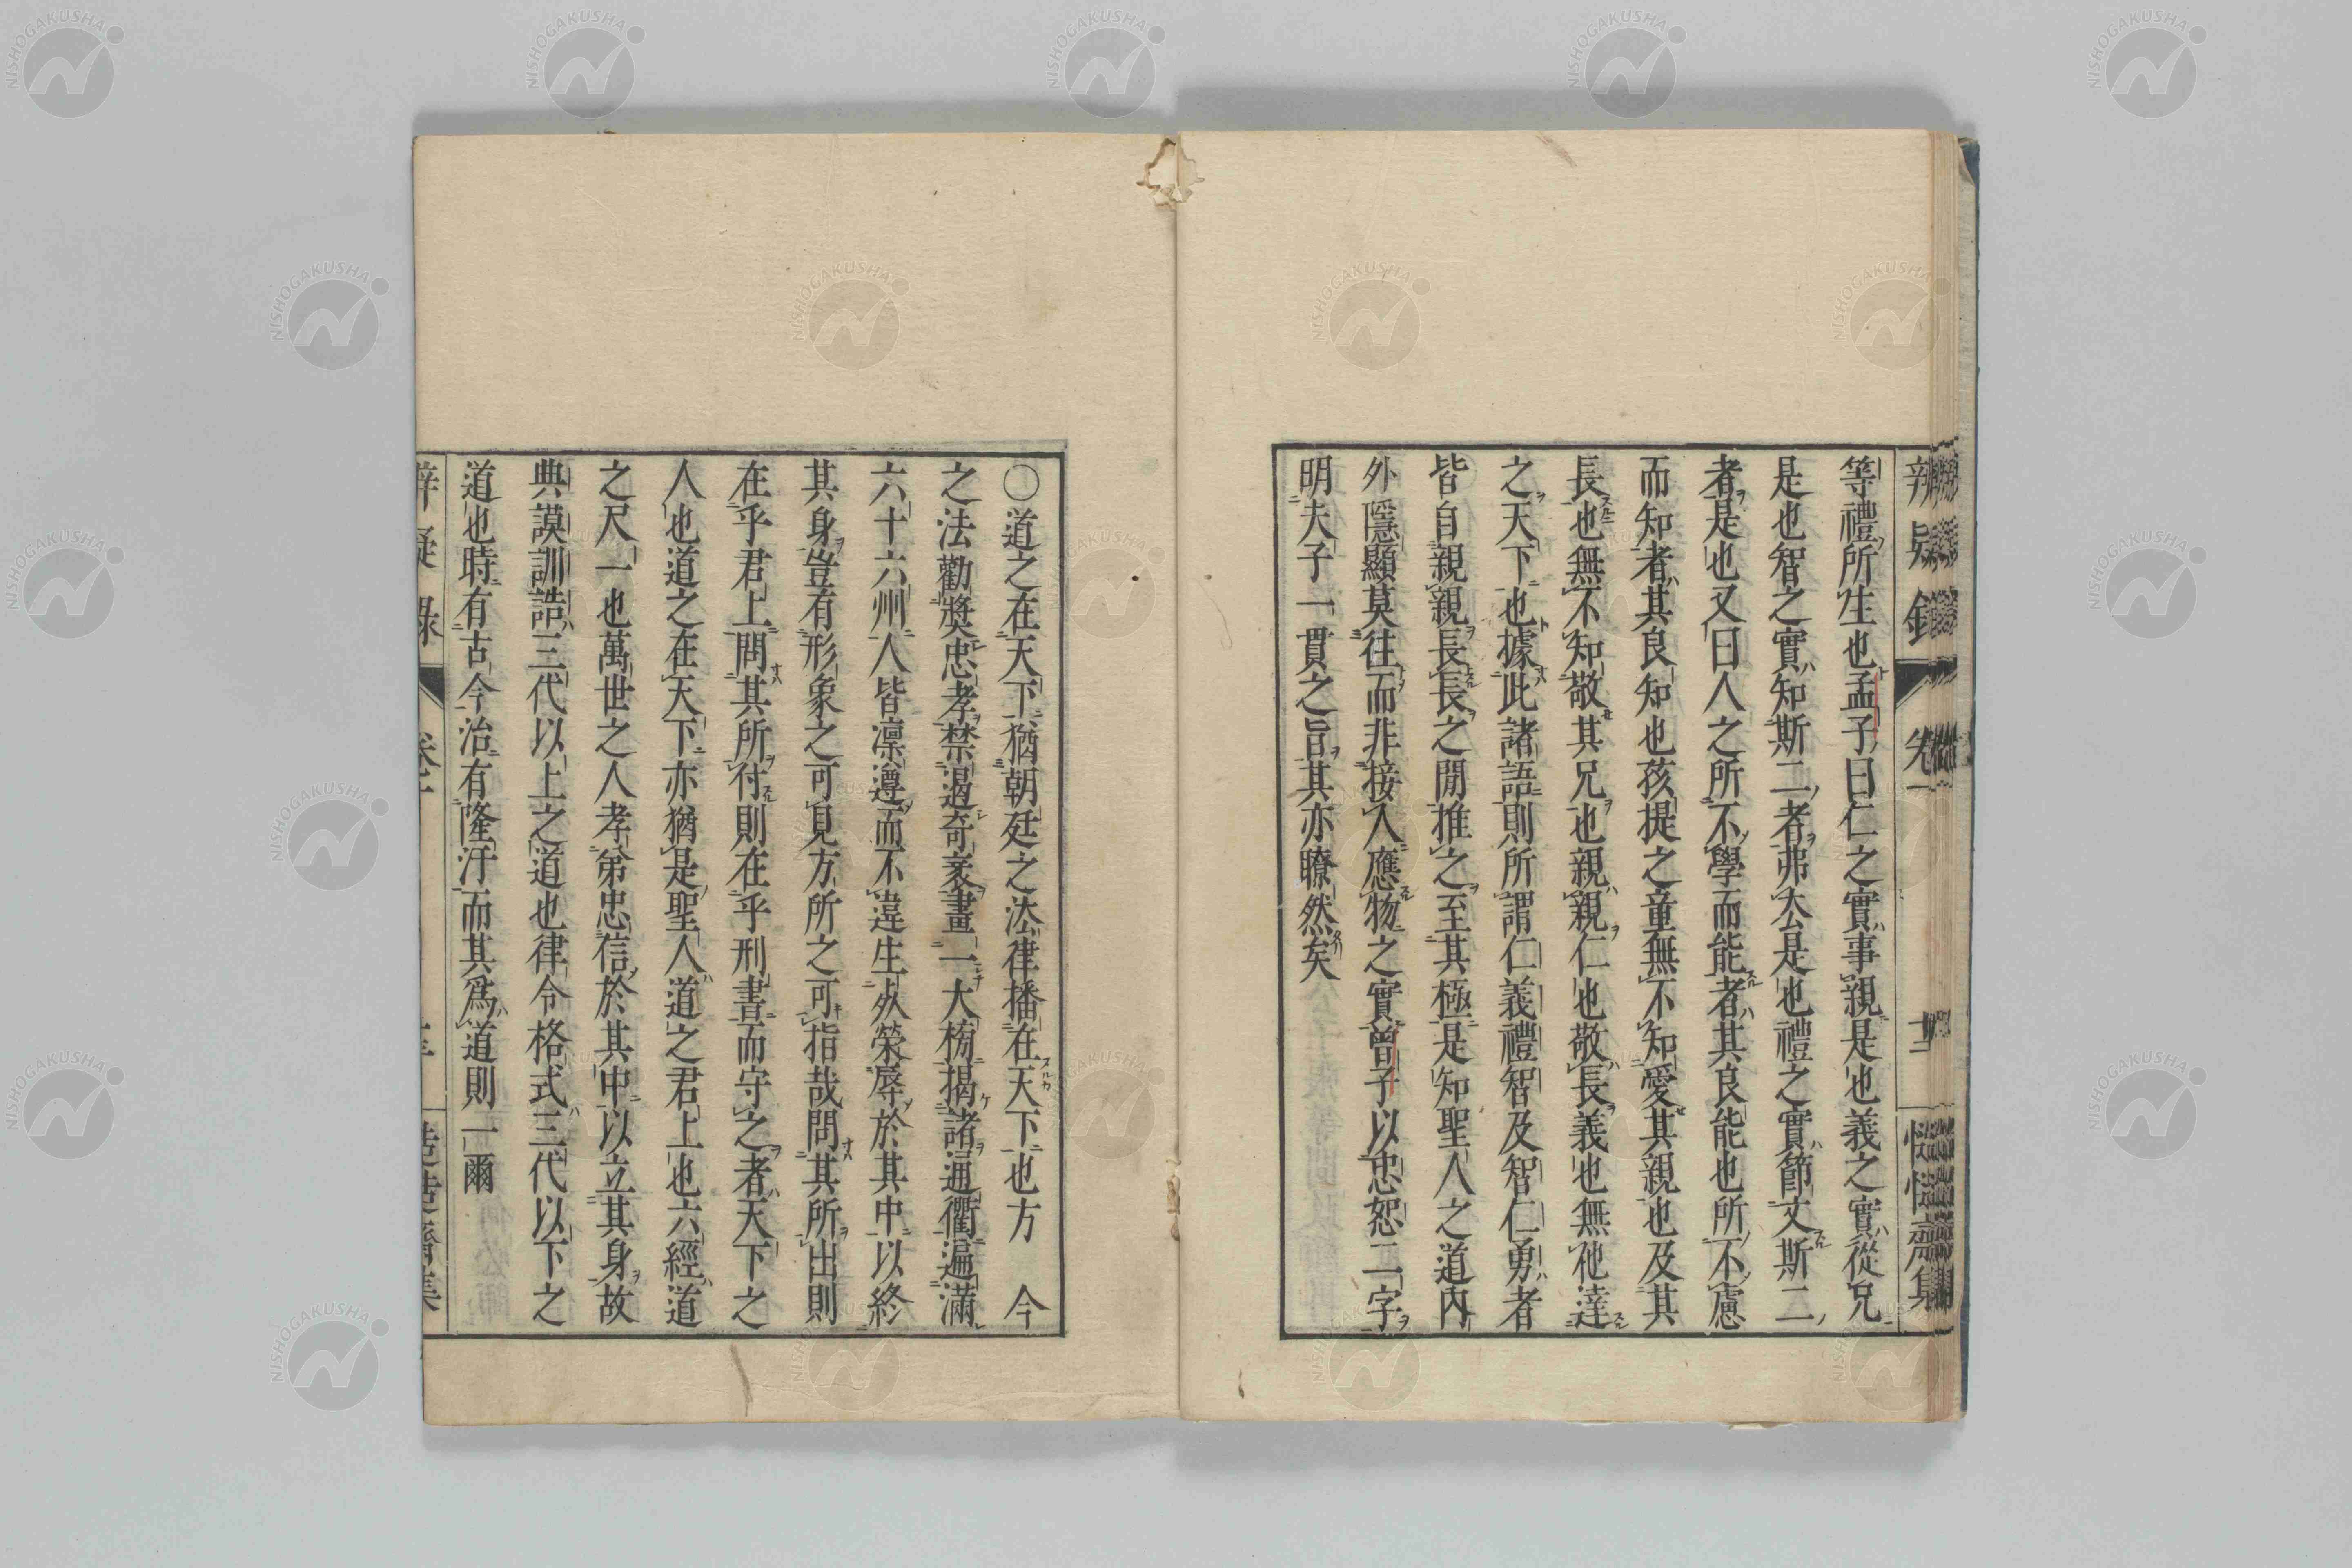 等禮所生也孟子曰仁之實事親是也義之實從兄
是也智之實知斯二者弗去是也禮之實節文斯二
者是也又曰人之所不學而能者其良能也所不慮
而知者其良知也孩提之童無不知愛其親也及其
長也無不知敬其兄也親親仁也敬長義也無他達
之天下也據此諸語則所謂仁義禮智及智仁勇者
皆自親親長長之間推之至其極是知聖人之道内
外隱顯莫往而非接人應物之實曾子以忠恕二字
明夫子一貫之旨其亦瞭然矣
〇道之在天下猶朝廷之法律播在天下也方　今
之法勸奬忠孝禁遏奇衺畫一大榜揭諸通衢遍滿
六十六州人皆凛遵而不違生死榮辱於其中以終
其身豈有形象之可見方所之可指哉問其所出則
在乎君上問其所付則在乎刑書而守之者天下之
人也道之在天下亦猶是聖人道之君上也六經道
之尺一也萬世之人孝弟忠信於其中以立其身故
典謨訓誥三代以上之道也律令格式三代以下之
道也時有古今治有隆汙而其爲道則一爾